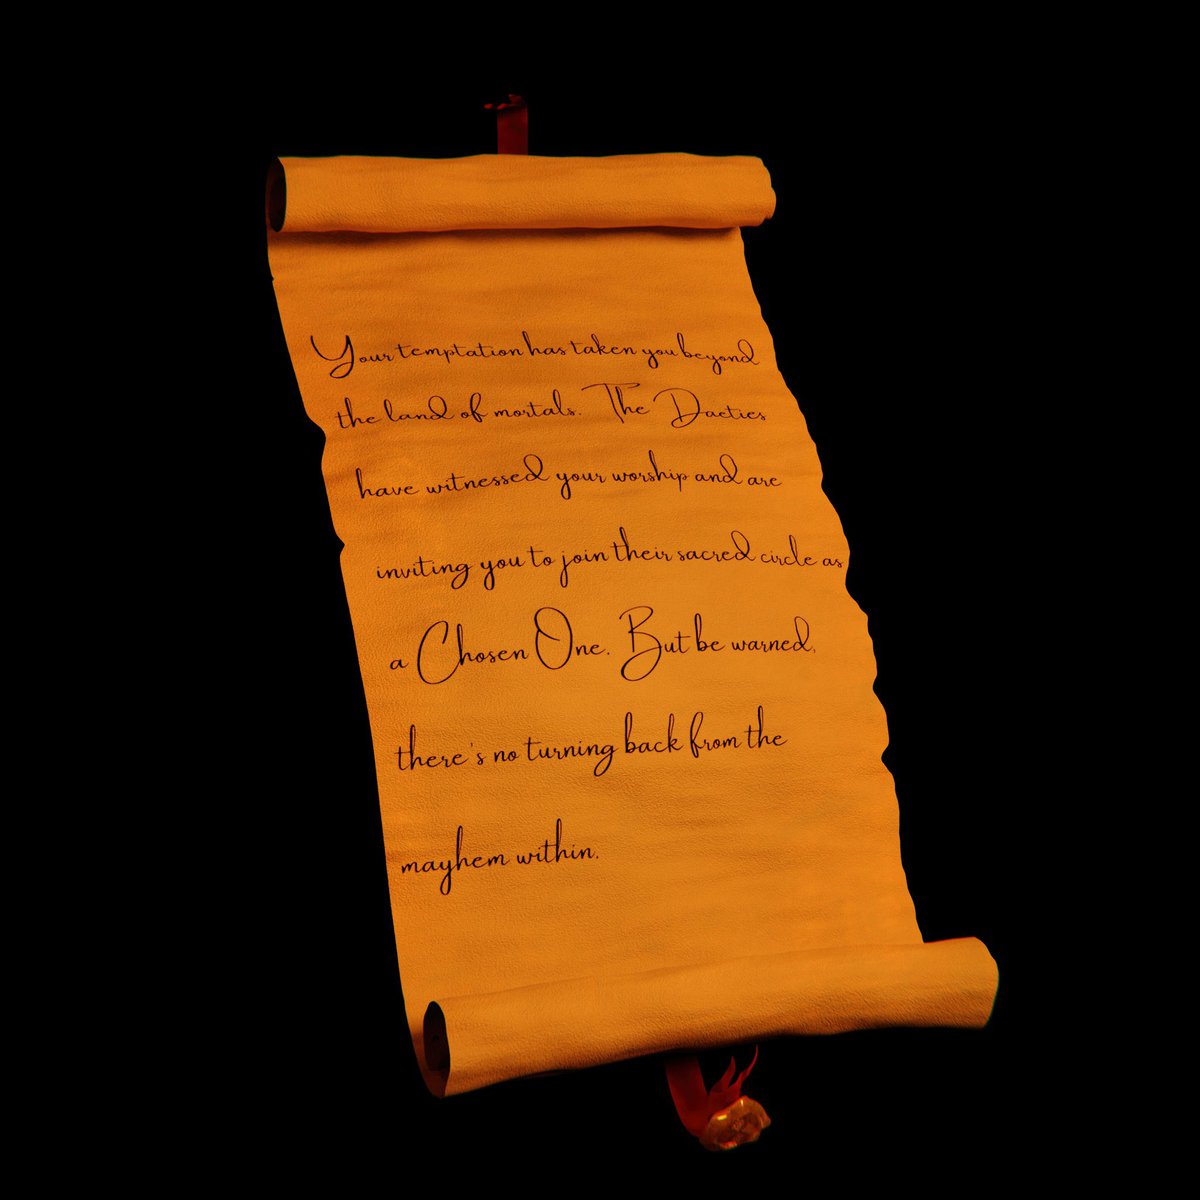 Your temptation has taken you beyond
the land of mortals. The Daeties
have witnessed your worship and are
inviting you to join their sacred circle as
a Chosen One. But be warned,
there's no turning back from the
mayhem within.